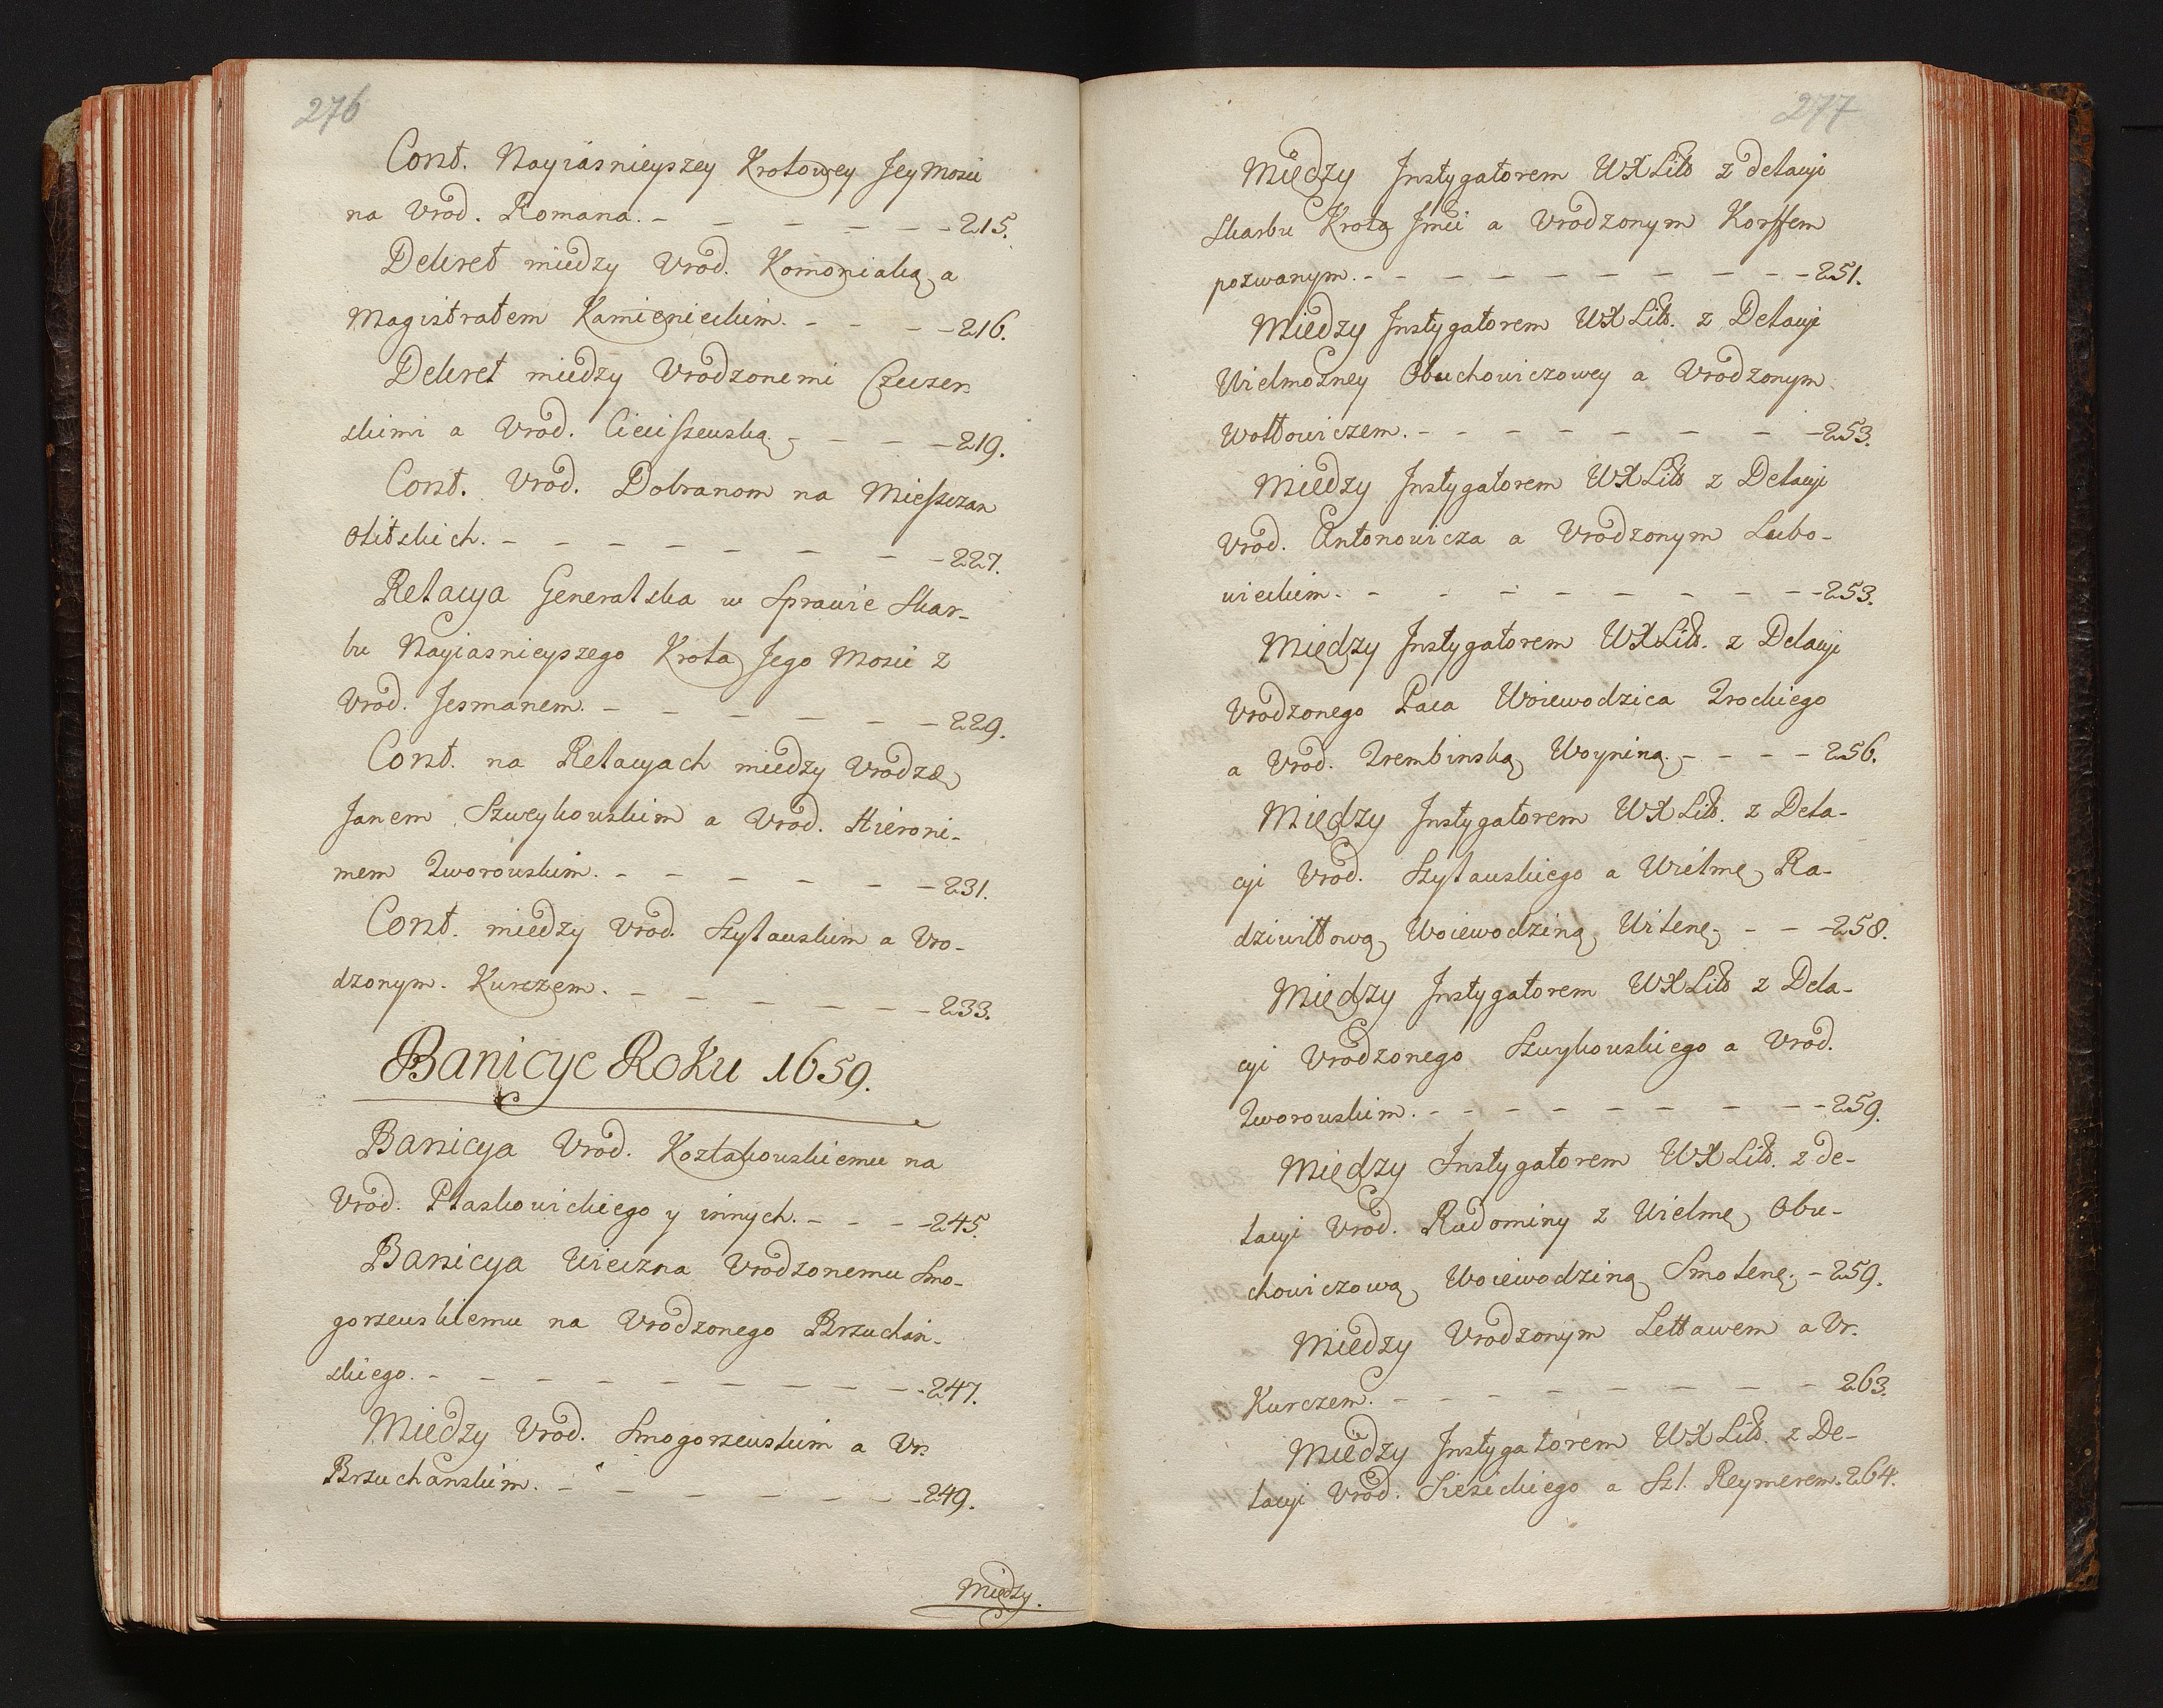 276
Cont. Nayiasnieyszey Krolowey Jey Mosci
na Vrod. Romana. - - - - - - 215.
Dekret miedzy Vrod. Komoniaką a
Magistratem Kamienieckim. - - - - 216.
Dekret miedzy Vrodzonemi Czeczer
skimi a Vrod. Cieciszewską. - - - - 219.
Cont. Vrod. Dolranom na Mieszczan
Olitskich. - - - - - - - - 227.
Relacya Generalska w Sprawie Skar-
bu Nayiasnieyszego Krola Jego Mosci z
Vrod. Jesmanem. - - - - - - - 229.
Cont. na Relacyach miedzy Vrodzę
Janem Szweykowskim a Vrod. Hieroni-
mem Zworowskim. - - - - - - - 231.
Cont. miedzy Vrod. Szylauskim a Vro-
dzonym. Kurczem. - - - - - - 233.
Banicye Roku 1659.
Banicya Vrod. Kozlakowskiemu na
Vrod. Plaskowickiego y innych. - - - - 245.
Banicya Wieczna Vrodzonemu Smo-
gorzewskiemu na Vrodzonego Brzuchan-
skiego. - - - - - - - - - - 247.
Miedzy Vrod. Smogorzewskim a Vr.
Brzuchanskim. - - - - - - - - 249.
Między.
277
Między Instygatorem WXLitt z delacyi
Skarbu Krola Jmci a Vrodzonym Korffem
pozwanym. - - - - - - - - - - 251.
Miedzy Instygatorem WXLitt. z Delacyi
Wielmozney Obuchowiczowey a Vrodzonym
Wołłowiczem. - - - - - - - - 253.
Miedzy Instygatorem WXLitt z Delacyi
Vrod. Antonowicza a Vrodzonym Lubo-
wieckim. - - - - - - - - - - 253.
Między Instygatorem WXLitt. z Delacyi
Vrodzonego Paca Woiewodzica Trockiego
a Vrod. Trembinską Woyniną. - - - - 256.
Między Instygatorem WXLitt. z Dela-
cyi Vrod. Szylauskiego a Wielmę Ra-
dziwiłłową Woiewodziną Wilenę. - - - 258.
Między Instygatorem WXLitt z Dela-
cyi Vrodzonego Szwykowskiego a Vrod.
Zworowskim. - - - - - - - - - 259.
Między Instygatorem WXLitt. z de-
lacyi Vrod. Radominy z Wielmę Obu-
chowiczową Woiewodziną Smolenę. - 259.
Miedzy Vrodzonym Lettawem a Vr.
Kurczem. - - - - - - - - 263.
Miedzy Instygatorem WXLitt. z De-
lacyi Vrod. Siesickiego a Szl. Reymerem. 264.